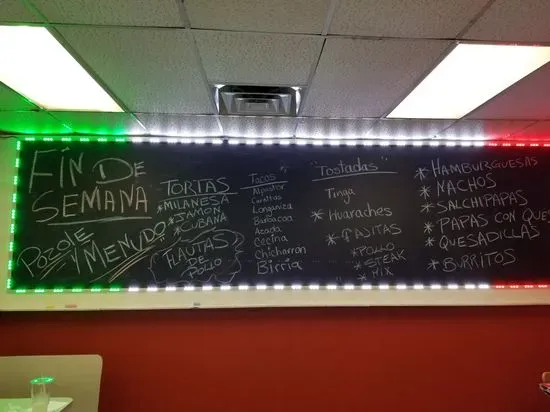 FIN DE
SEMANA
POZOLE
Y MENUDO
TORTAS
*MILANESA
*JAMON
*CUBANA
FLAUTAS
DE
POLLO
Tacos
Alpastor
Carnitas
Longaniza
Barbacoa
Asada
Cecina
Chicharron
Birria
"Tostadas"
Tinga
* Huaraches
* FAJITAS
*POLLO
*STEAK
*MIX
*HAMBURGUESAS
* NACHOS
* SALCHIPAPAS
* PAPAS CON QUE
*QUESADILLAS
* BURRITOS